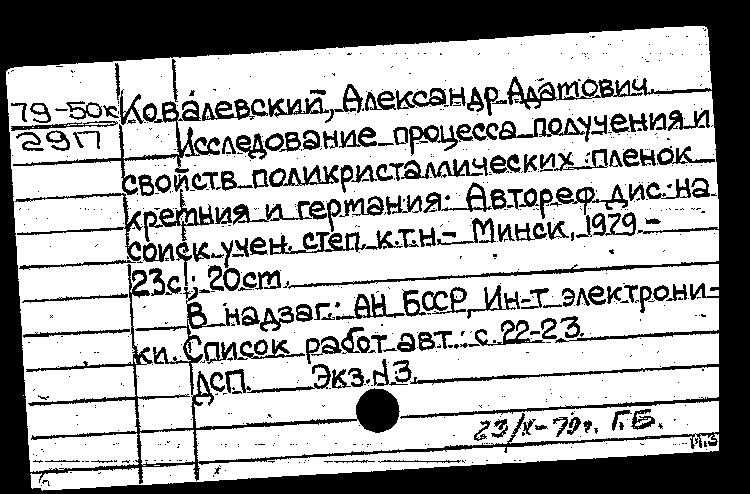 79-50к Ковалевский, Александр Адатович.
29П Исследование процесса получения и
свойств поликристаллических пленок
кремния и германия: Автореф. дис. на
соиск. учен. степ. к.т.н.- Минск, 1979.-
23с.; 20ст.
В надзаг.: АН БССР, Ин-т электрони-
ки. Список работ авт.: с. 22-23.
ДСП. Экз.N3.
23/X-79г. Г.Б.